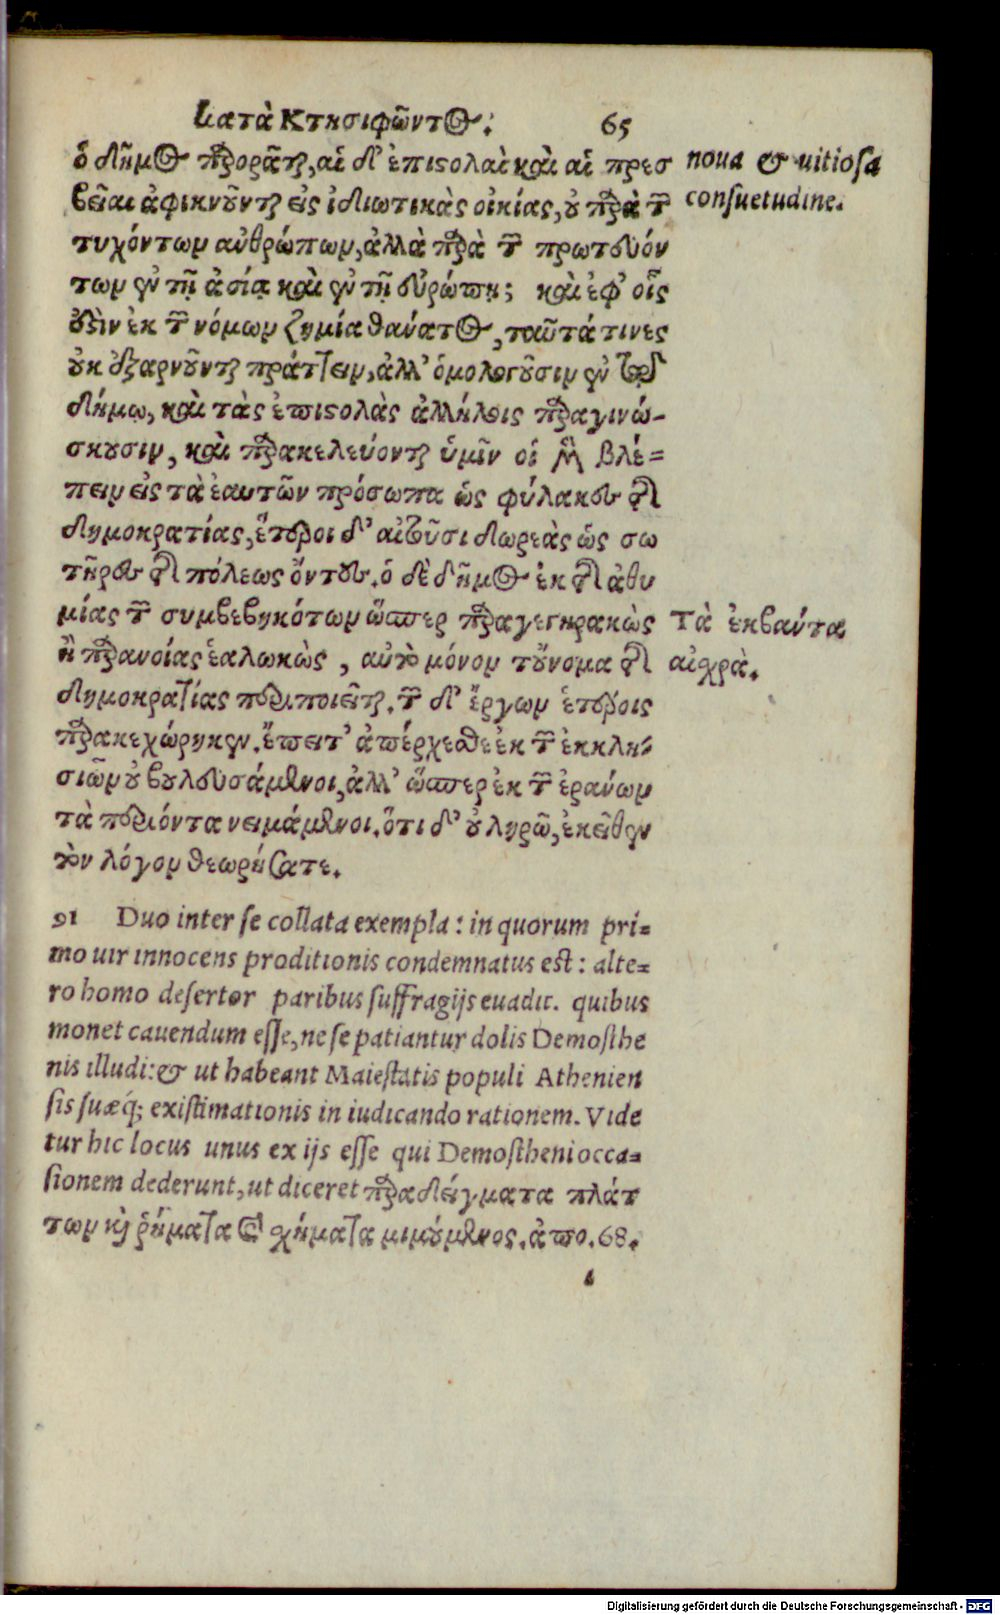 Κατὰ Κτησιφῶντος. 65
ὁ δῆμος παρορᾶται, αἱ δ' ἐπιστολαὶ καὶ αἱ πρεσ
βεῖαι ἀφικνοῦνται εἰς ἰδιωτικὰς οἰκίας, οὐ παρὰ τῶν
τυχόντων ἀνθρώπων, ἀλλὰ παρὰ τῶν πρωτευόν
των ἐν τῇ ἀσίᾳ καὶ ἐν τῇ εὐρώπῃ; καὶ ἐφ' οἷς
ὅστιν ἐκ τῶν νόμων ζημία θάνατος, ταῦτά τινες
οὐκ ἐξαρνοῦνται πράττειν, ἀλλ' ὁμολογοῦσιν ἐν τῷ
δήμῳ, καὶ τὰς ἐπιστολὰς ἀλλήλοις παραγινώ-
σκουσιν, καὶ παρακελεύονται ὑμῖν οἱ μὲν βλέ=
πειν εἰς τὰ ἑαυτῶν πρόσωπα ὡς φύλακες τῆς
δημοκρατίας, ἕτεροι δ' αἰτοῦσι δωρεὰς ὡς σω
τῆρες τῆς πόλεως ὄντες. ὁ δὲ δῆμος ἐκ τῆς ἀθυ
μίας τῶν συμβεβηκότων ὥσπερ παραγεγηρακὼς
ἢ παρανοίας ἑαλωκὼς, αὐτὸ μόνον τοὔνομα τῆς
δημοκρατίας περιποιεῖται. τῶν δ' ἔργων ἑτέροις
παρακεχώρηκεν. ἔπειτ' ἀπέρχεσθε ἐκ τῶν ἐκκλη-
σιῶν οὐ βουλευσάμενοι, ἀλλ' ὥσπερ ἐκ τῶν ἐράνων
τὰ περιόντα νειμάμενοι. ὅτι δ' οὐ ληρῶ, ἐκεῖθεν
τὸν λόγον θεωρήσατε.
noua & uitiosa
consuetudine.
Τὰ ἐκβαύτα
αἰχρὰ.
91 Duo inter se collata exempla: in quorum pri=
mo uir innocens proditionis condemnatus est: alte=
ro homo desertor paribus suffragijs euadit. quibus
monet cauendum esse, ne se patiantur dolis Demosthe
nis illudi: & ut habeant Maiestatis populi Athenien
sis suæq; existimationis in iudicando rationem. Vide
tur hic locus unus ex ijs esse qui Demostheni occa=
sionem dederunt, ut diceret παραδείγματα πλάτ
των καὶ ῥήματα καὶ σχήματα μιμούμενος. ἀπο. 68.
Digitalisierung gefördert durch die Deutsche Forschungsgemeinschaft - DFG